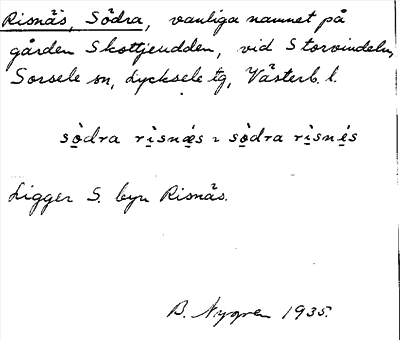 Risnäs, Södra, vanliga namnet på
gården Skottjeudden, vid Storvindeln,
Sorsele sn, Lycksele tg, Västerb. l.
södra risnæs ~ södra risnés
Ligger S. byn Risnäs.
B. Nygren 1935.